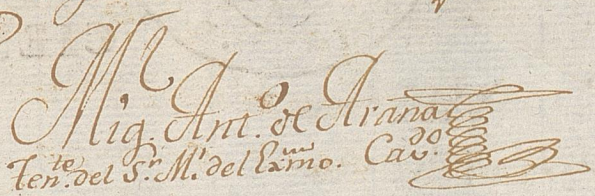 Mig. Ant.º de Arana
Ten.te del S.r M.r del Exmo. Cav.do